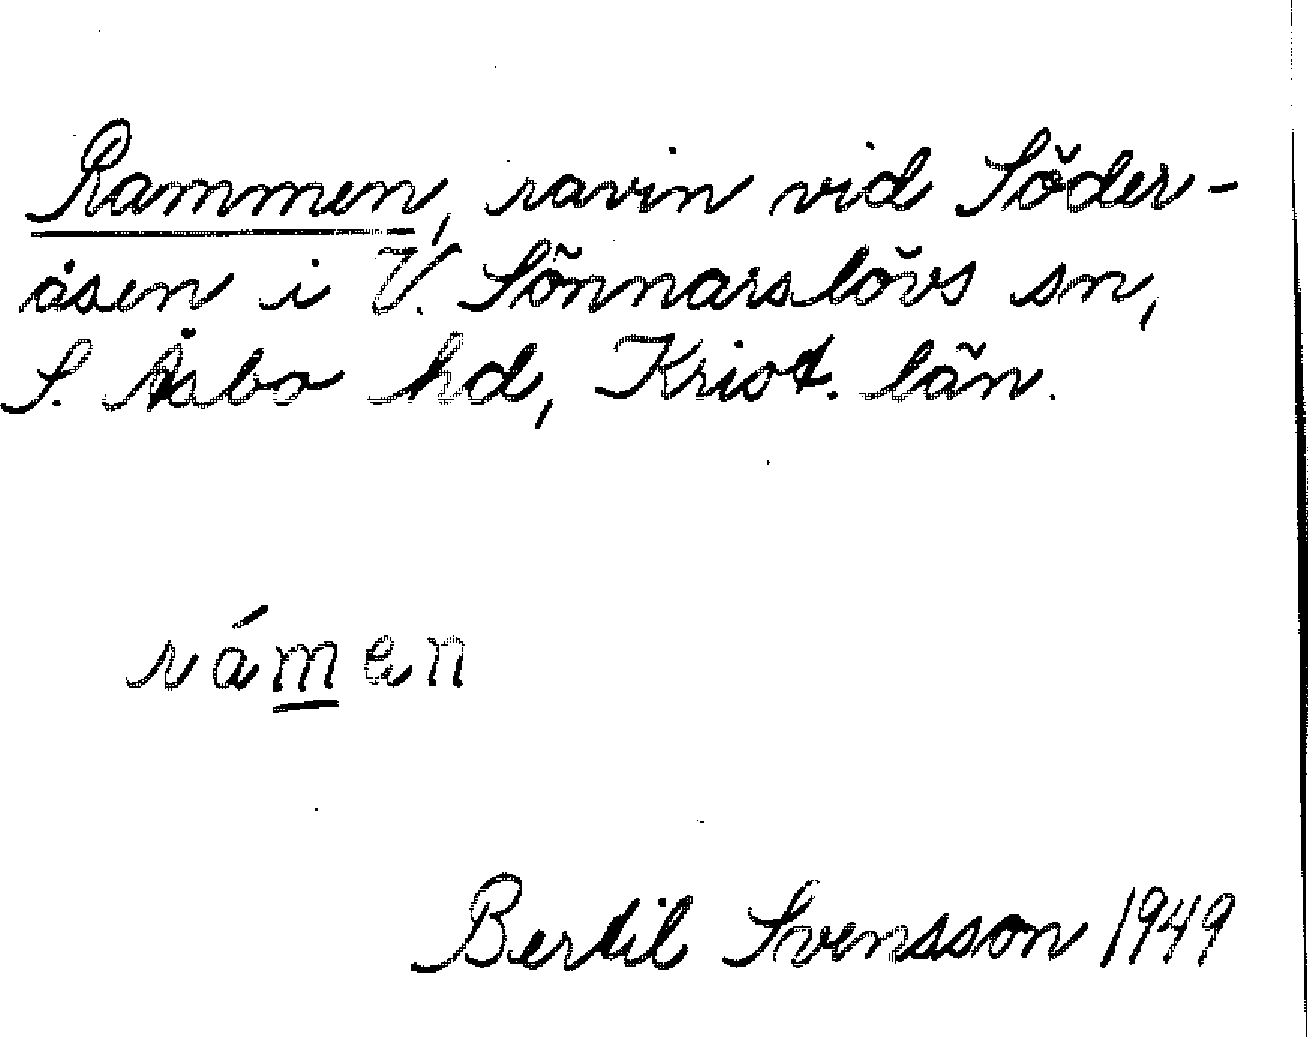 Rammen, ravin vid Söder-
åsen i V. Sönnarslövs sn,
S. Åsbo hd, Krist. län.
rámen
Bertil Svensson 1949